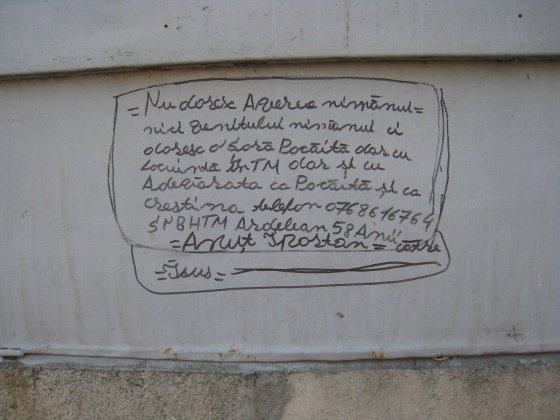 = Nu doresc Averea nimănui =
nici Venitului nimănui ci
doresc o Soră Pocăită dar cu
Locuință în TM dar și cu
Adevărata ca Pocăită și ca
creștina telefon 0768616764
ȘNBHTM Ardelean 58 Anii
= Anuț Trostan = către
= Isus =